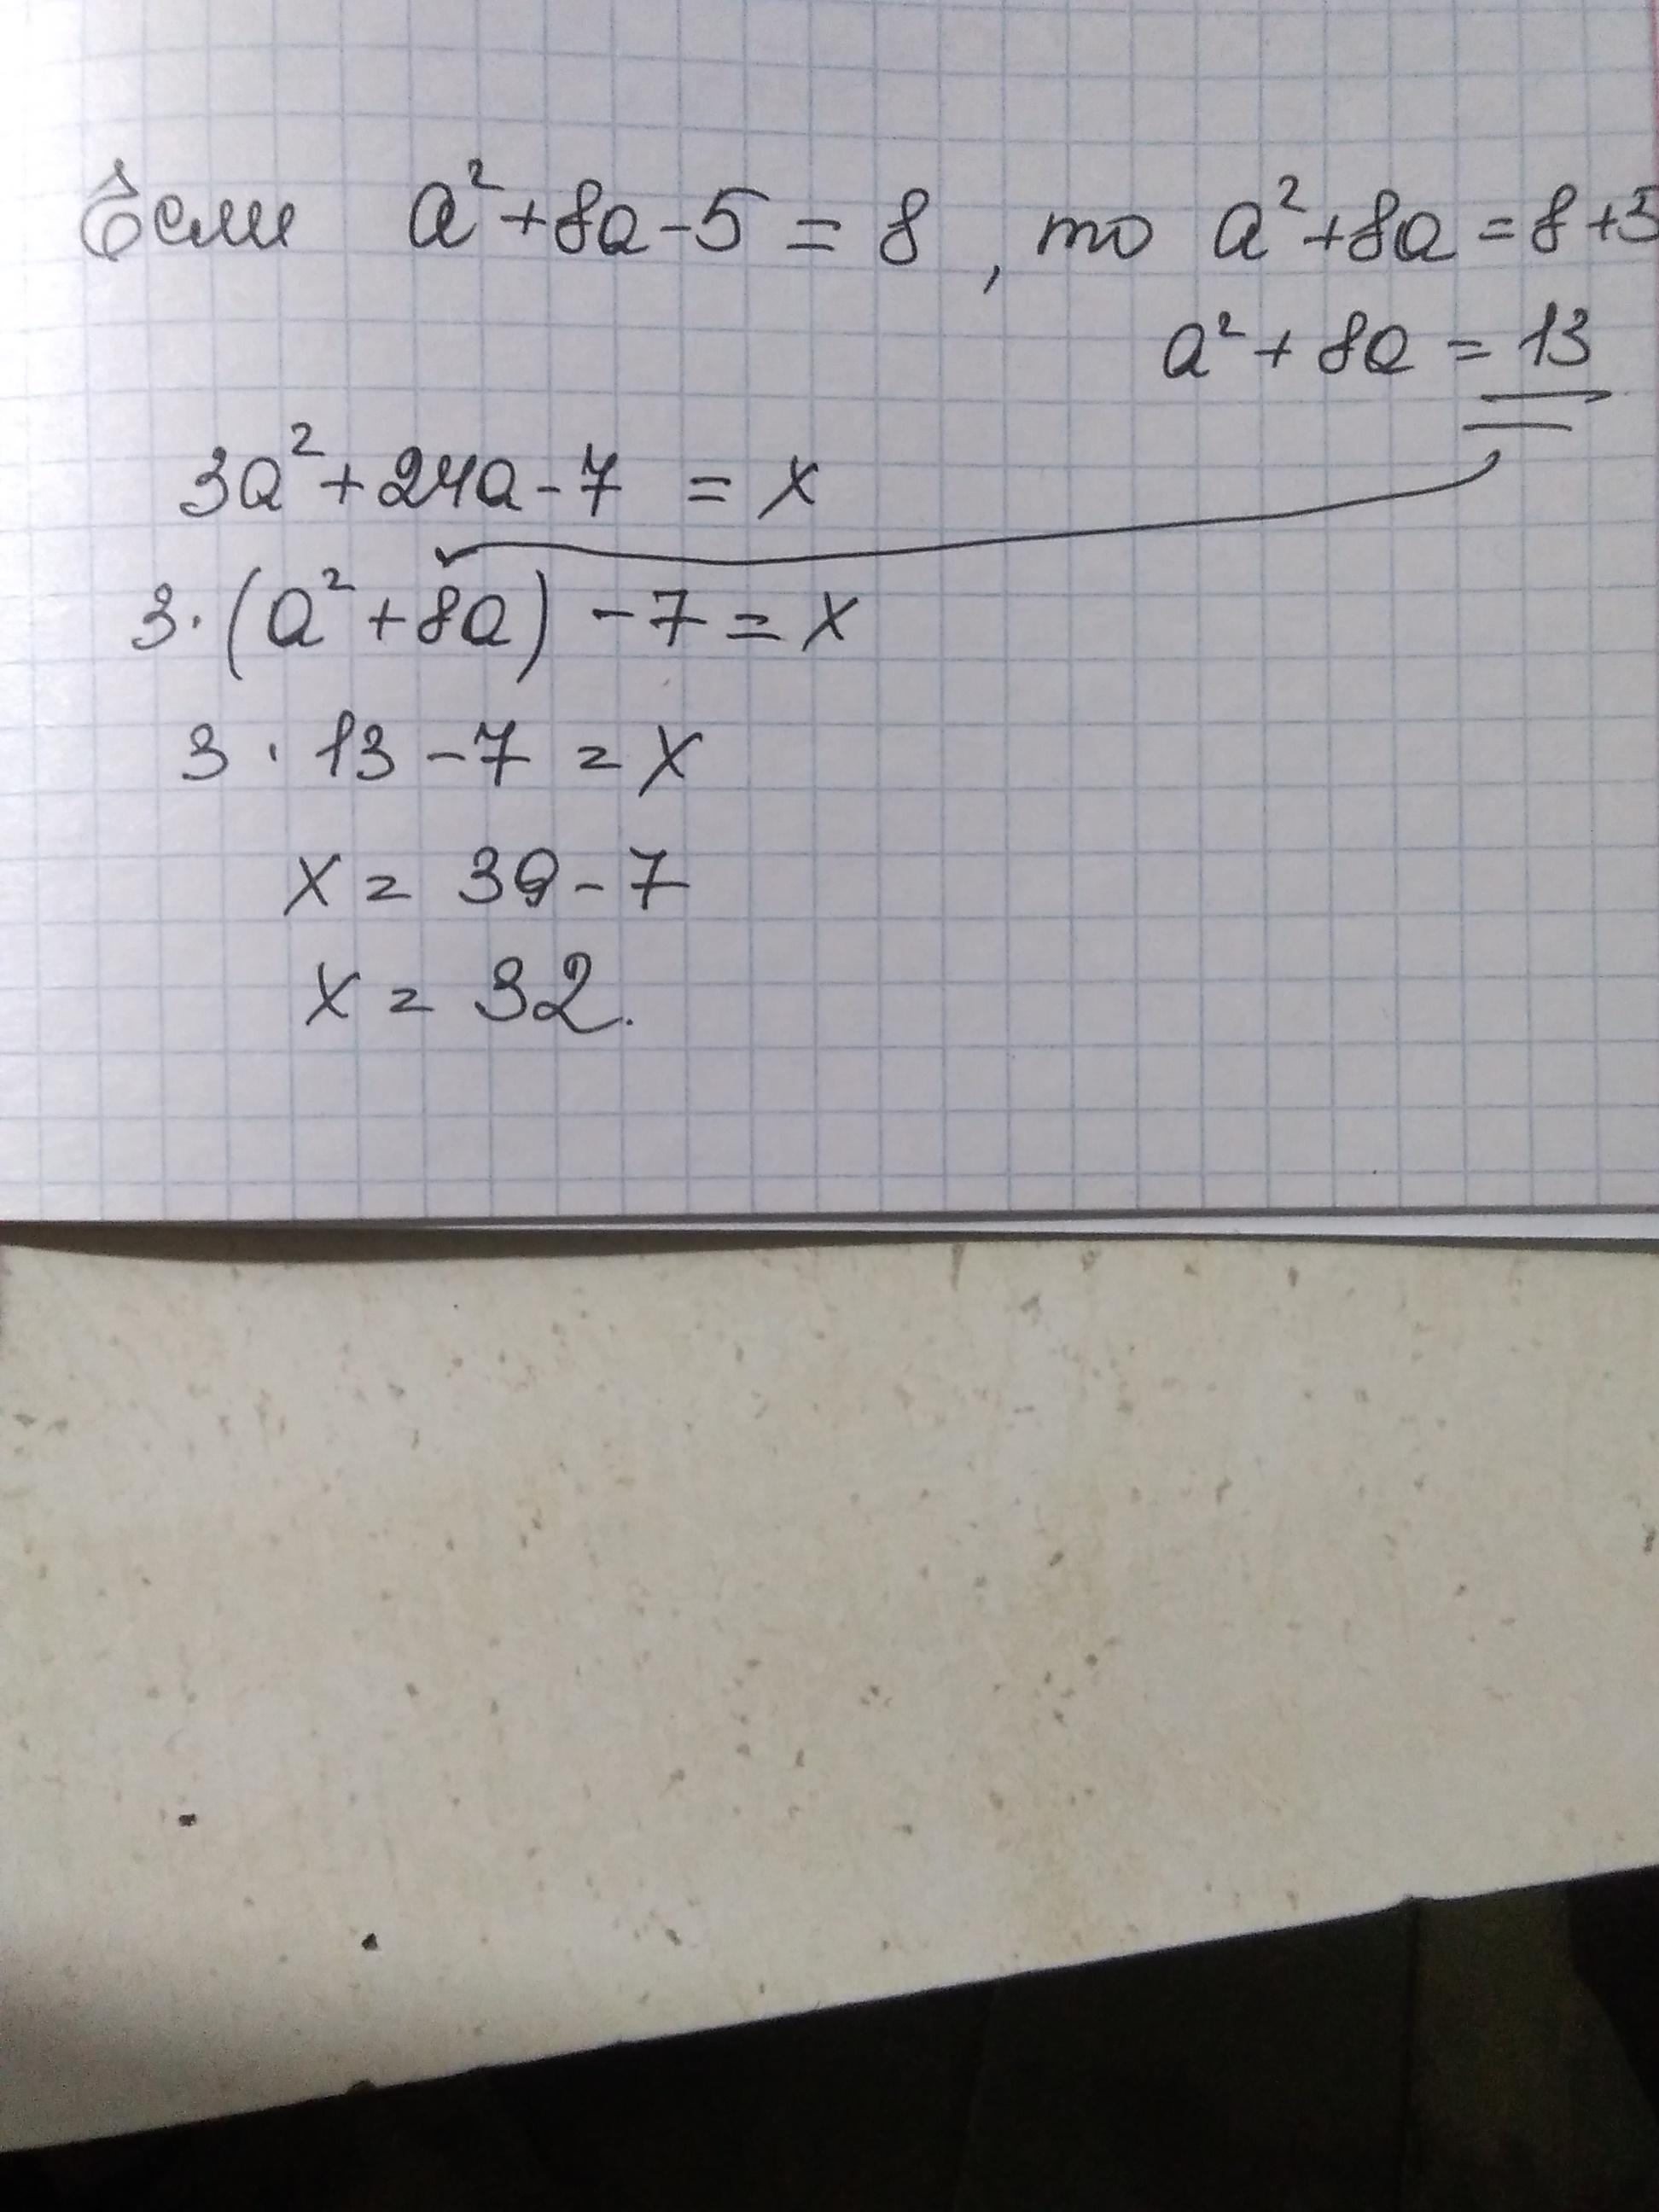 Если a²+8a-5=8, то a²+8a=8+5
a²+8a=13
3a²+24a-7=x
3·(a²+8a)-7=x
3·13-7=x
x=39-7
x=32.